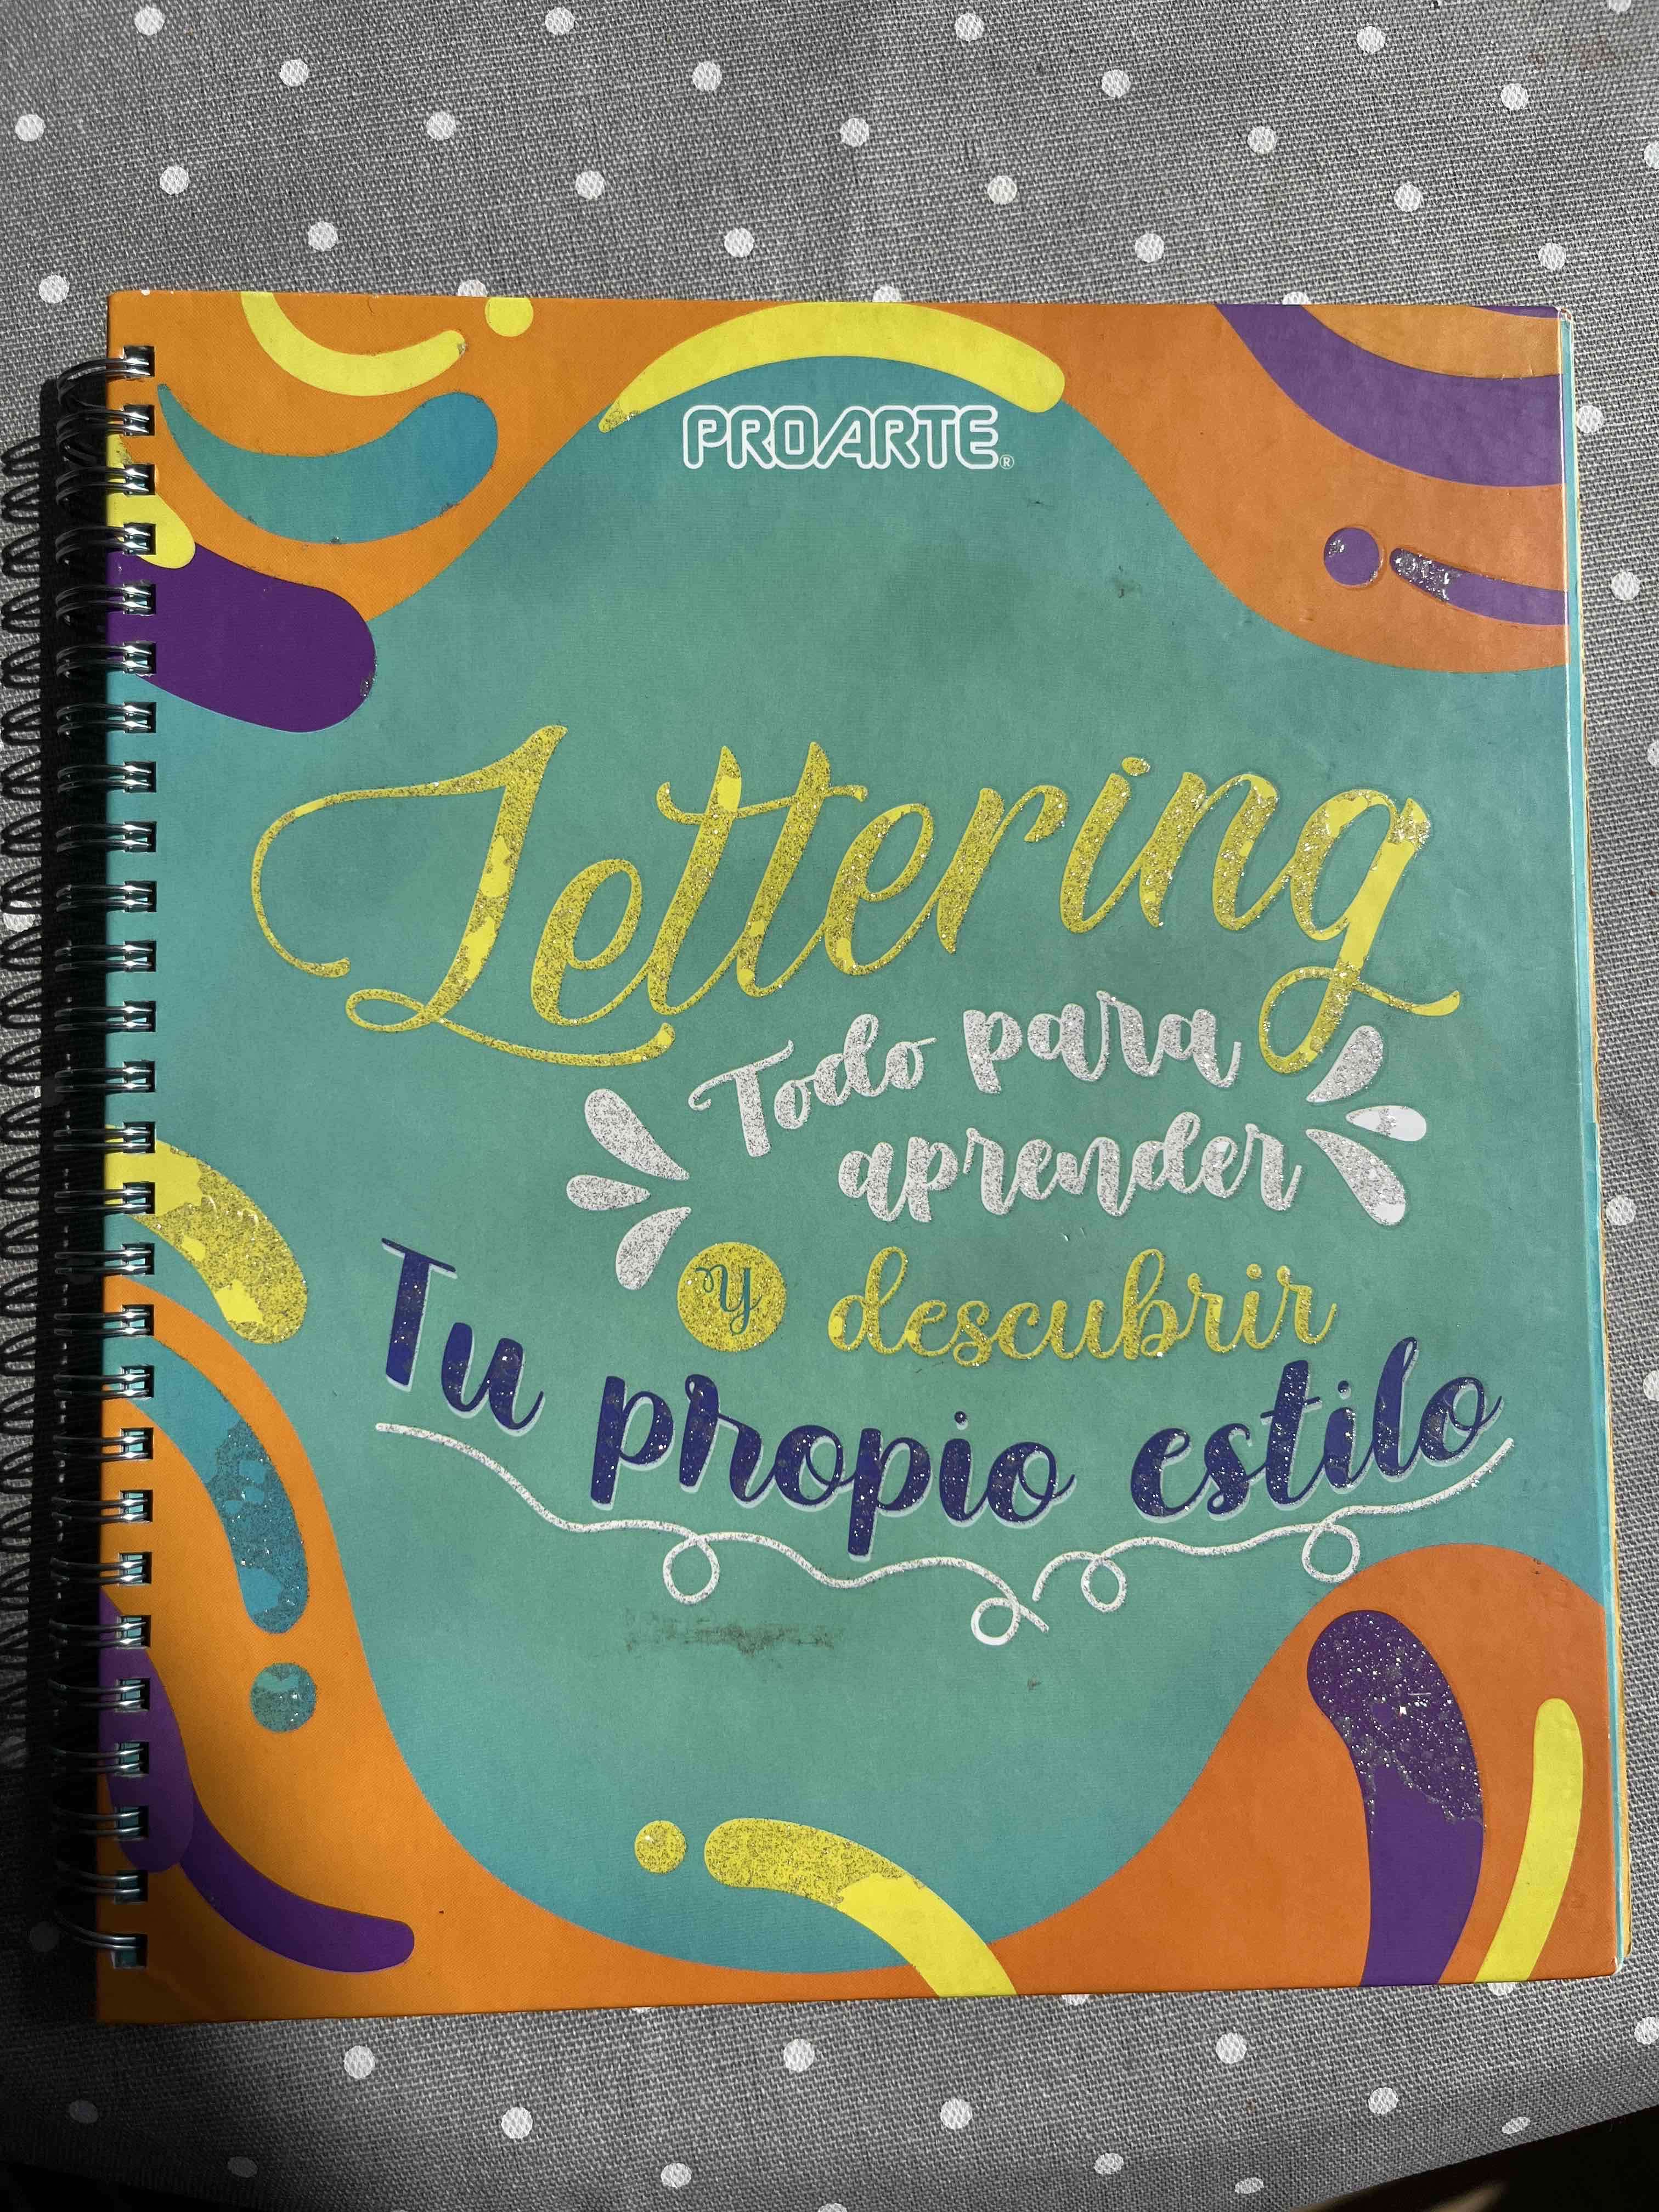 PROARTE®
Lettering
Todo para
aprender
y descubrir
Tu propio estilo